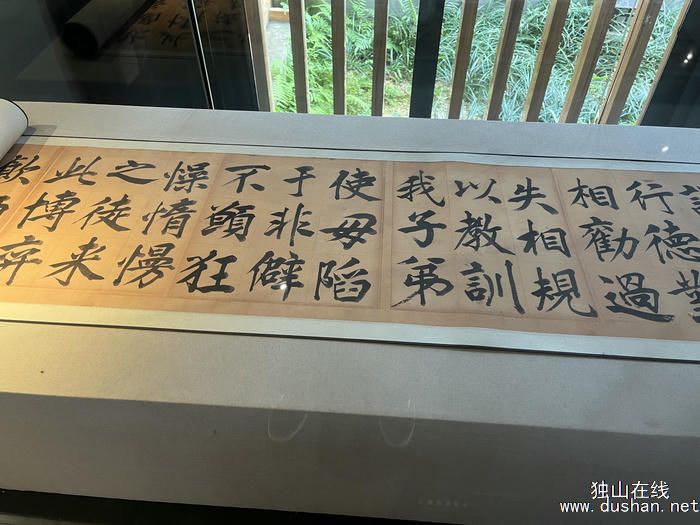 行德
相勸過
失相規
以教訓
我子弟
使毋陷
于非僻
不顛狂
燥惰慢
之徒来
此博弈
独山在线
www.dushan.net